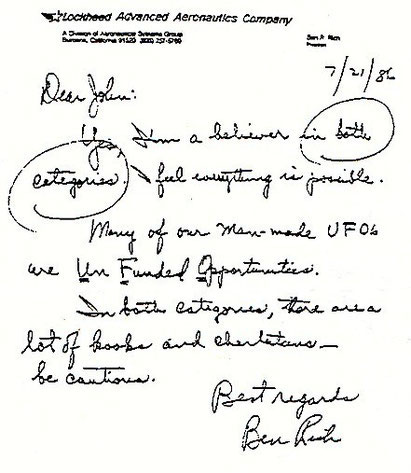 Lockheed Advanced Aeronautics Company
A Division of Aeronautical Systems Group
Burbank, California 91520
Ben R. Rich
President
7/21/86
Dear John:
Yes, I'm a believer in both
categories. I feel everything is possible.
Many of our man-made UFOs
are Un Funded Opportunities.
In both categories, there are a
lot of kooks and charletans—
be cautious.
Best regards
Ben Rich